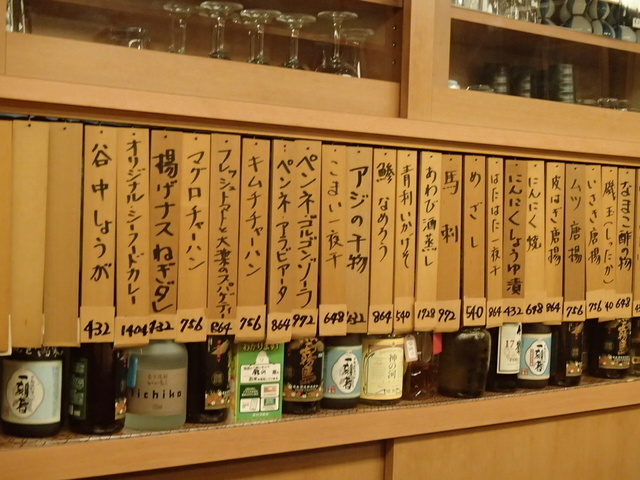 なまこ酢の物
648
磯玉(しったか)
いさき唐揚
756
ムツ唐揚
756
皮はぎ唐揚
864
にんにく焼
648
にんにくしょうゆ漬
432
はたはた一夜干
864
めざし
540
馬刺
992
あわび酒蒸し
1928
青利いかげそ
540
鯵なめろう
864
アジの干物
こまい一夜干
648
ペンネ・ゴルゴンゾーラ
992
ペンネ・アラビアータ
864
キムチチャーハン
756
フレッシュトマトと大葉のスパゲティ
864
マグロチャーハン
756
揚げナスねぎダレ
432
オリジナル・シーフドカレー
1404
谷中しょうが
432
一刻者
Michiko
一刻者
神の河
一刻者
17